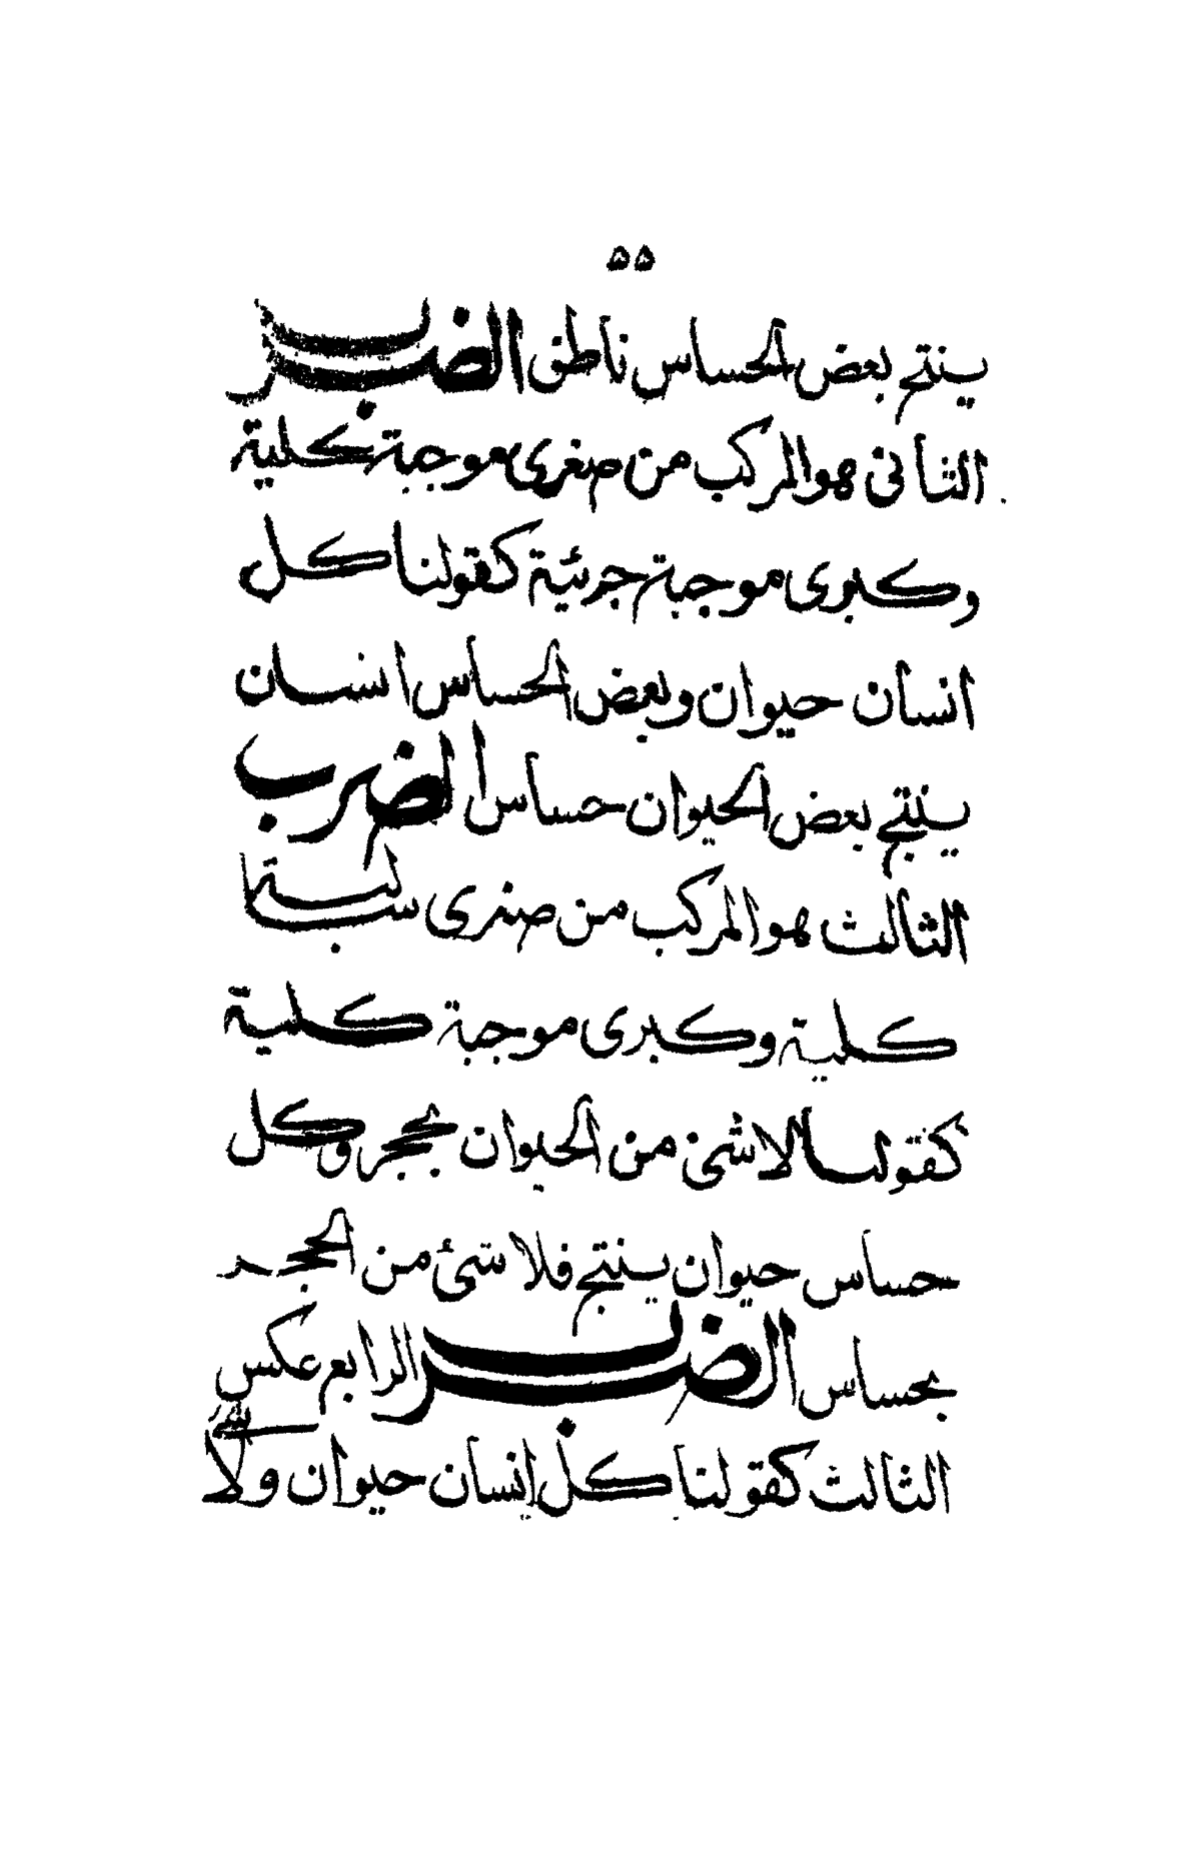 ۵۵
ينتج بعض الحساس ناطق الضرب
الثاني هو المركب من صغرى موجبة كلية
وكبرى موجبة جزئية كقولنا كل
انسان حيوان وبعض الحساس انسان
ينتج بعض الحيوان حساس الضرب
الثالث هو المركب من صغرى سالبة
كلية وكبرى موجبة كلية
كقولنا لاشئ من الحيوان بحجر وكل
حساس حيوان ينتج فلا شئ من الحجر
بحساس الضرب الرابع عكس
الثالث كقولنا كل انسان حيوان ولا
شئ